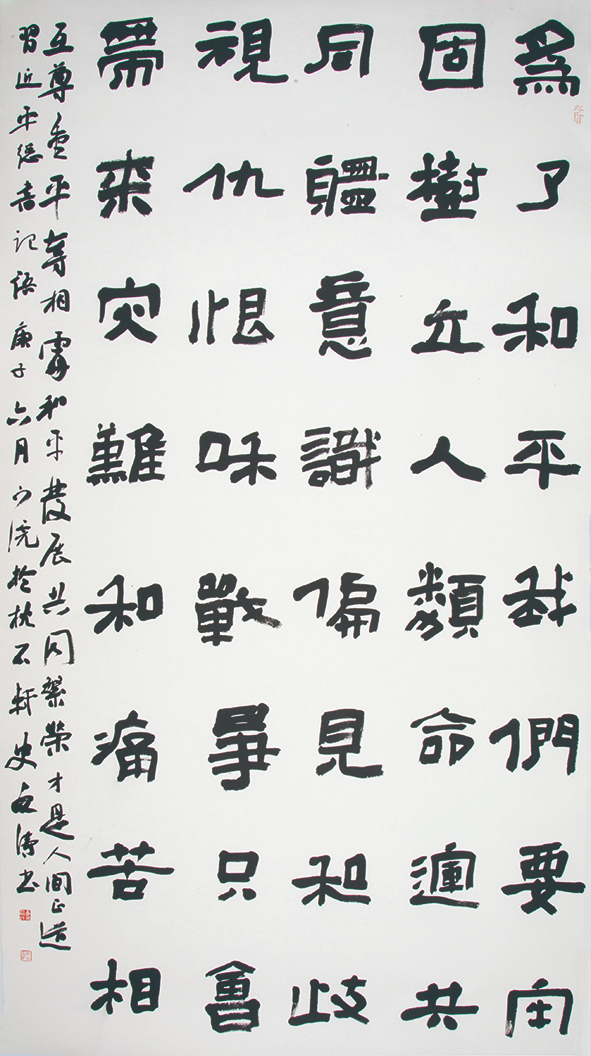 為了和平我們要牢
固樹立人類命運共
同體意識偏見和歧
視仇恨咊戰爭只會
帶來灾難和痛苦相
互尊重平等相處和平發展共同繁榮才是人間正道
習近平總書記語庚子六月下浣於枕石軒史濤書